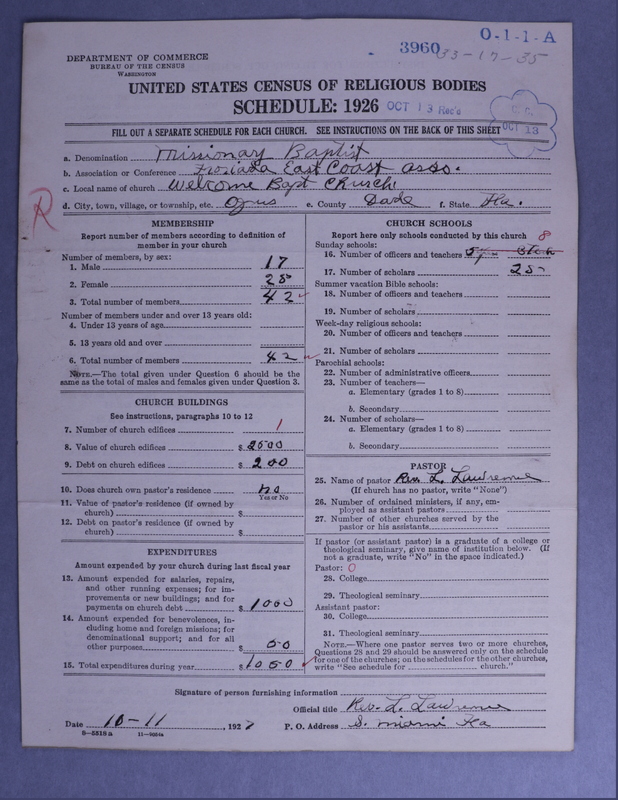 O-1-1-A
3960 33-17-35
DEPARTMENT OF COMMERCE
BUREAU OF THE CENSUS
WASHINGTON
UNITED STATES CENSUS OF RELIGIOUS BODIES
SCHEDULE: 1926 OCT 13 Rec'd
OCT 13
FILL OUT A SEPARATE SCHEDULE FOR EACH CHURCH. SEE INSTRUCTIONS ON THE BACK OF THIS SHEET
a. Denomination Missionary Baptist
b. Association or Conference Floriada East Coast asso.
c. Local name of church Welcome Bapt Church
d. City, town, village, or township, etc. Ojus e. County Dade f. State Fla.
R
MEMBERSHIP
Report number of members according to definition of
member in your church
Number of members, by sex:
1. Male 17
2. Female 25
3. Total number of members 42
Number of members under and over 13 years old:
4. Under 13 years of age
5. 13 years old and over
6. Total number of members 42
NOTE.—The total given under Question 6 should be the
same as the total of males and females given under Question 3.
CHURCH BUILDINGS
See instructions, paragraphs 10 to 12
7. Number of church edifices 1
8. Value of church edifices $2500
9. Debt on church edifices $200
10. Does church own pastor's residence no
Yes or No
11. Value of pastor's residence (if owned by
church) $
12. Debt on pastor's residence (if owned by
church) $
EXPENDITURES
Amount expended by your church during last fiscal year
13. Amount expended for salaries, repairs,
and other running expenses; for im-
provements or new buildings; and for
payments on church debt $1000
14. Amount expended for benevolences, in-
cluding home and foreign missions; for
denominational support; and for all
other purposes 50
15. Total expenditures during year $1050
CHURCH SCHOOLS
Report here only schools conducted by this church 8
Sunday schools:
16. Number of officers and teachers
17. Number of scholars 25
Summer vacation Bible schools:
18. Number of officers and teachers
19. Number of scholars
Week-day religious schools:
20. Number of officers and teachers
21. Number of scholars
Parochial schools:
22. Number of administrative officers
23. Number of teachers—
a. Elementary (grades 1 to 8)
b. Secondary
24. Number of scholars—
a. Elementary (grades 1 to 8)
b. Secondary
PASTOR
25. Name of pastor Rev. L. Lawrence
(If church has no pastor, write "None")
26. Number of ordained ministers, if any, em-
ployed as assistant pastors
27. Number of other churches served by the
pastor or his assistants
If pastor (or assistant pastor) is a graduate of a college or
theological seminary, give name of institution below. (If
not a graduate, write "No" in the space indicated.)
Pastor: 0
28. College
29. Theological seminary
Assistant pastor:
30. College
31. Theological seminary
NOTE.—Where one pastor serves two or more churches,
Questions 28 and 29 should be answered only on the schedule
for one of the churches; on the schedules for the other churches,
write "See schedule for church."
Signature of person furnishing information
Official title Rev. L. Lawrence
Date 10-11, 1927 P. O. Address S. Miami Fla
8-5518a 11-9064a